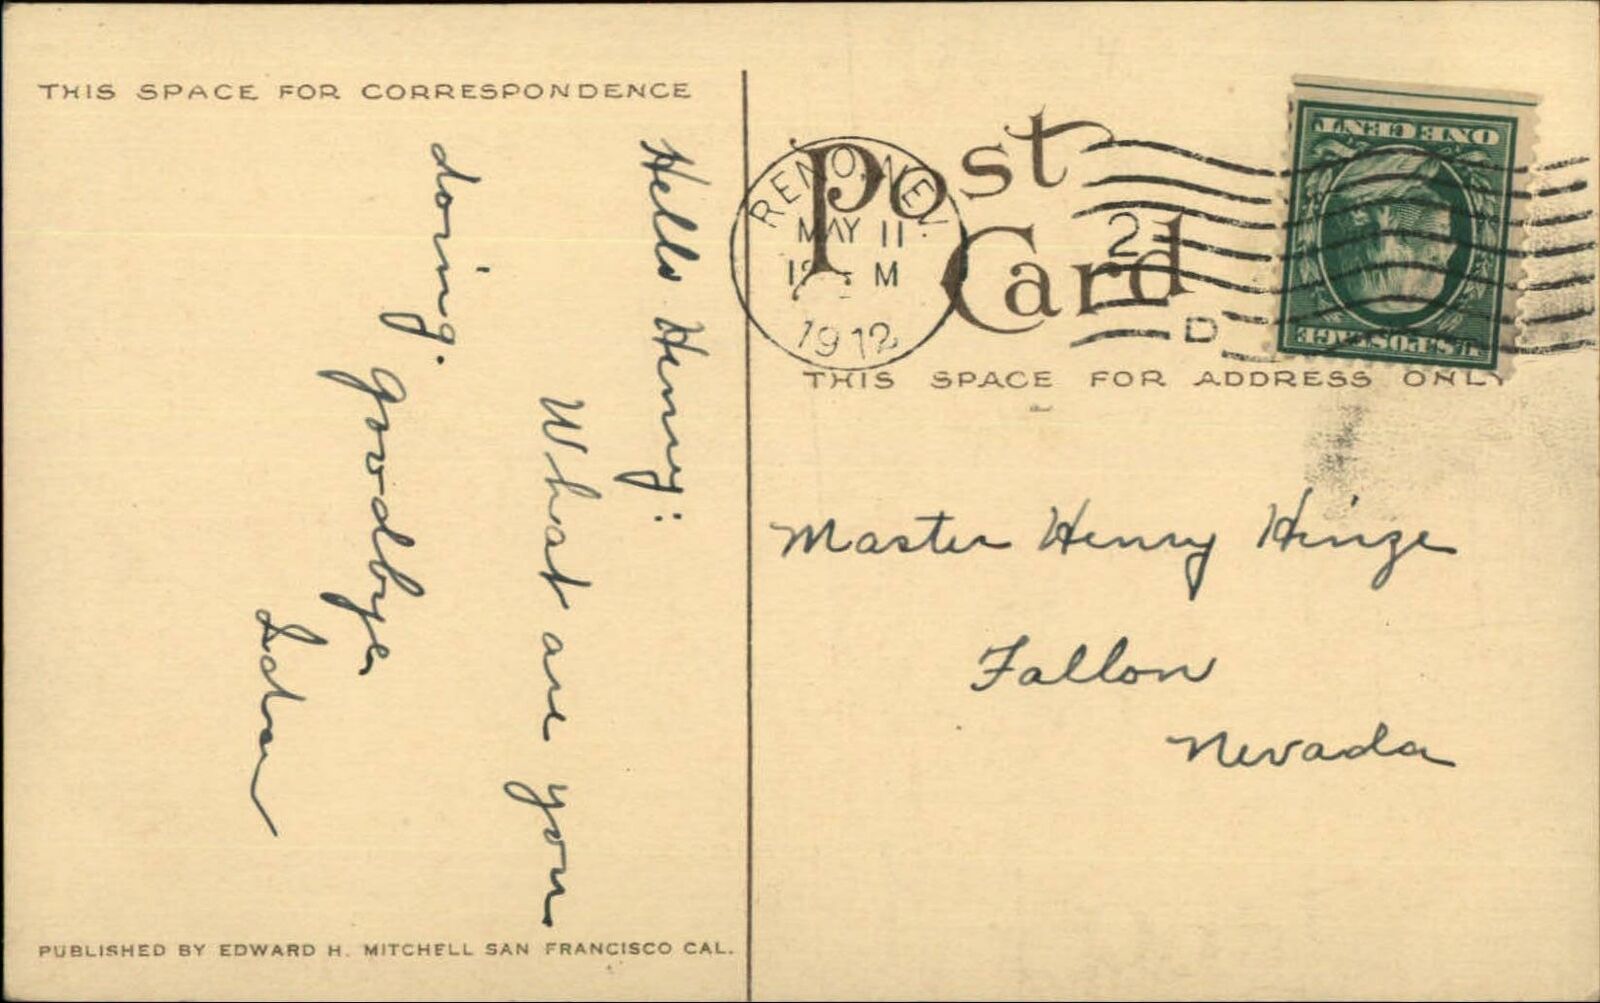 THIS SPACE FOR CORRESPONDENCE
Hello Henny:
What are you
doing.
Goodbye
Ida
PUBLISHED BY EDWARD H. MITCHELL SAN FRANCISCO CAL.
Post
Card
RENO, NEV.
MAY 11
M
1912
2
D
ONE CENT
U.S. POSTAGE
THIS SPACE FOR ADDRESS ONLY
Master Henry Hinze
Fallon
Nevada